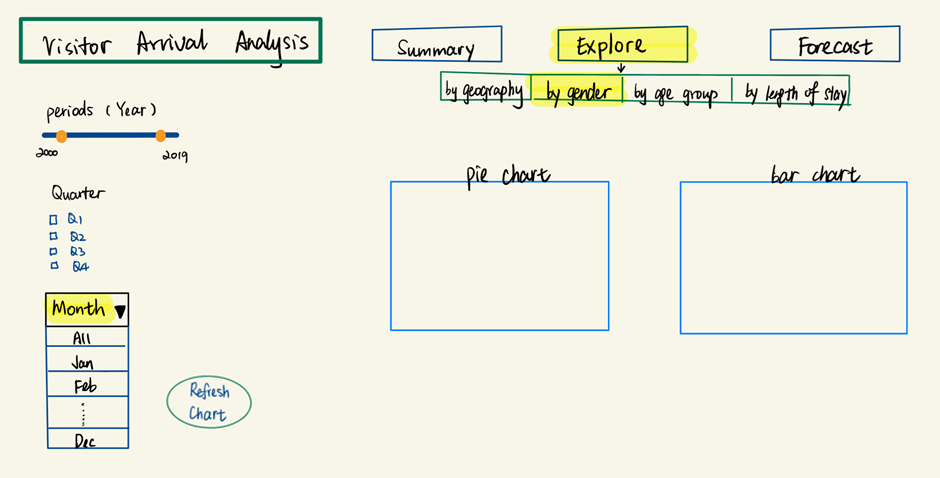 Visitor Arrival Analysis
Summary
Explore
Forecast
by geography
by gender
by age group
by length of stay
periods (Year)
2000
2019
Quarter
Q1
Q2
Q3
Q4
Month
All
Jan
Feb
Dec
Refresh
Chart
pie chart
bar chart